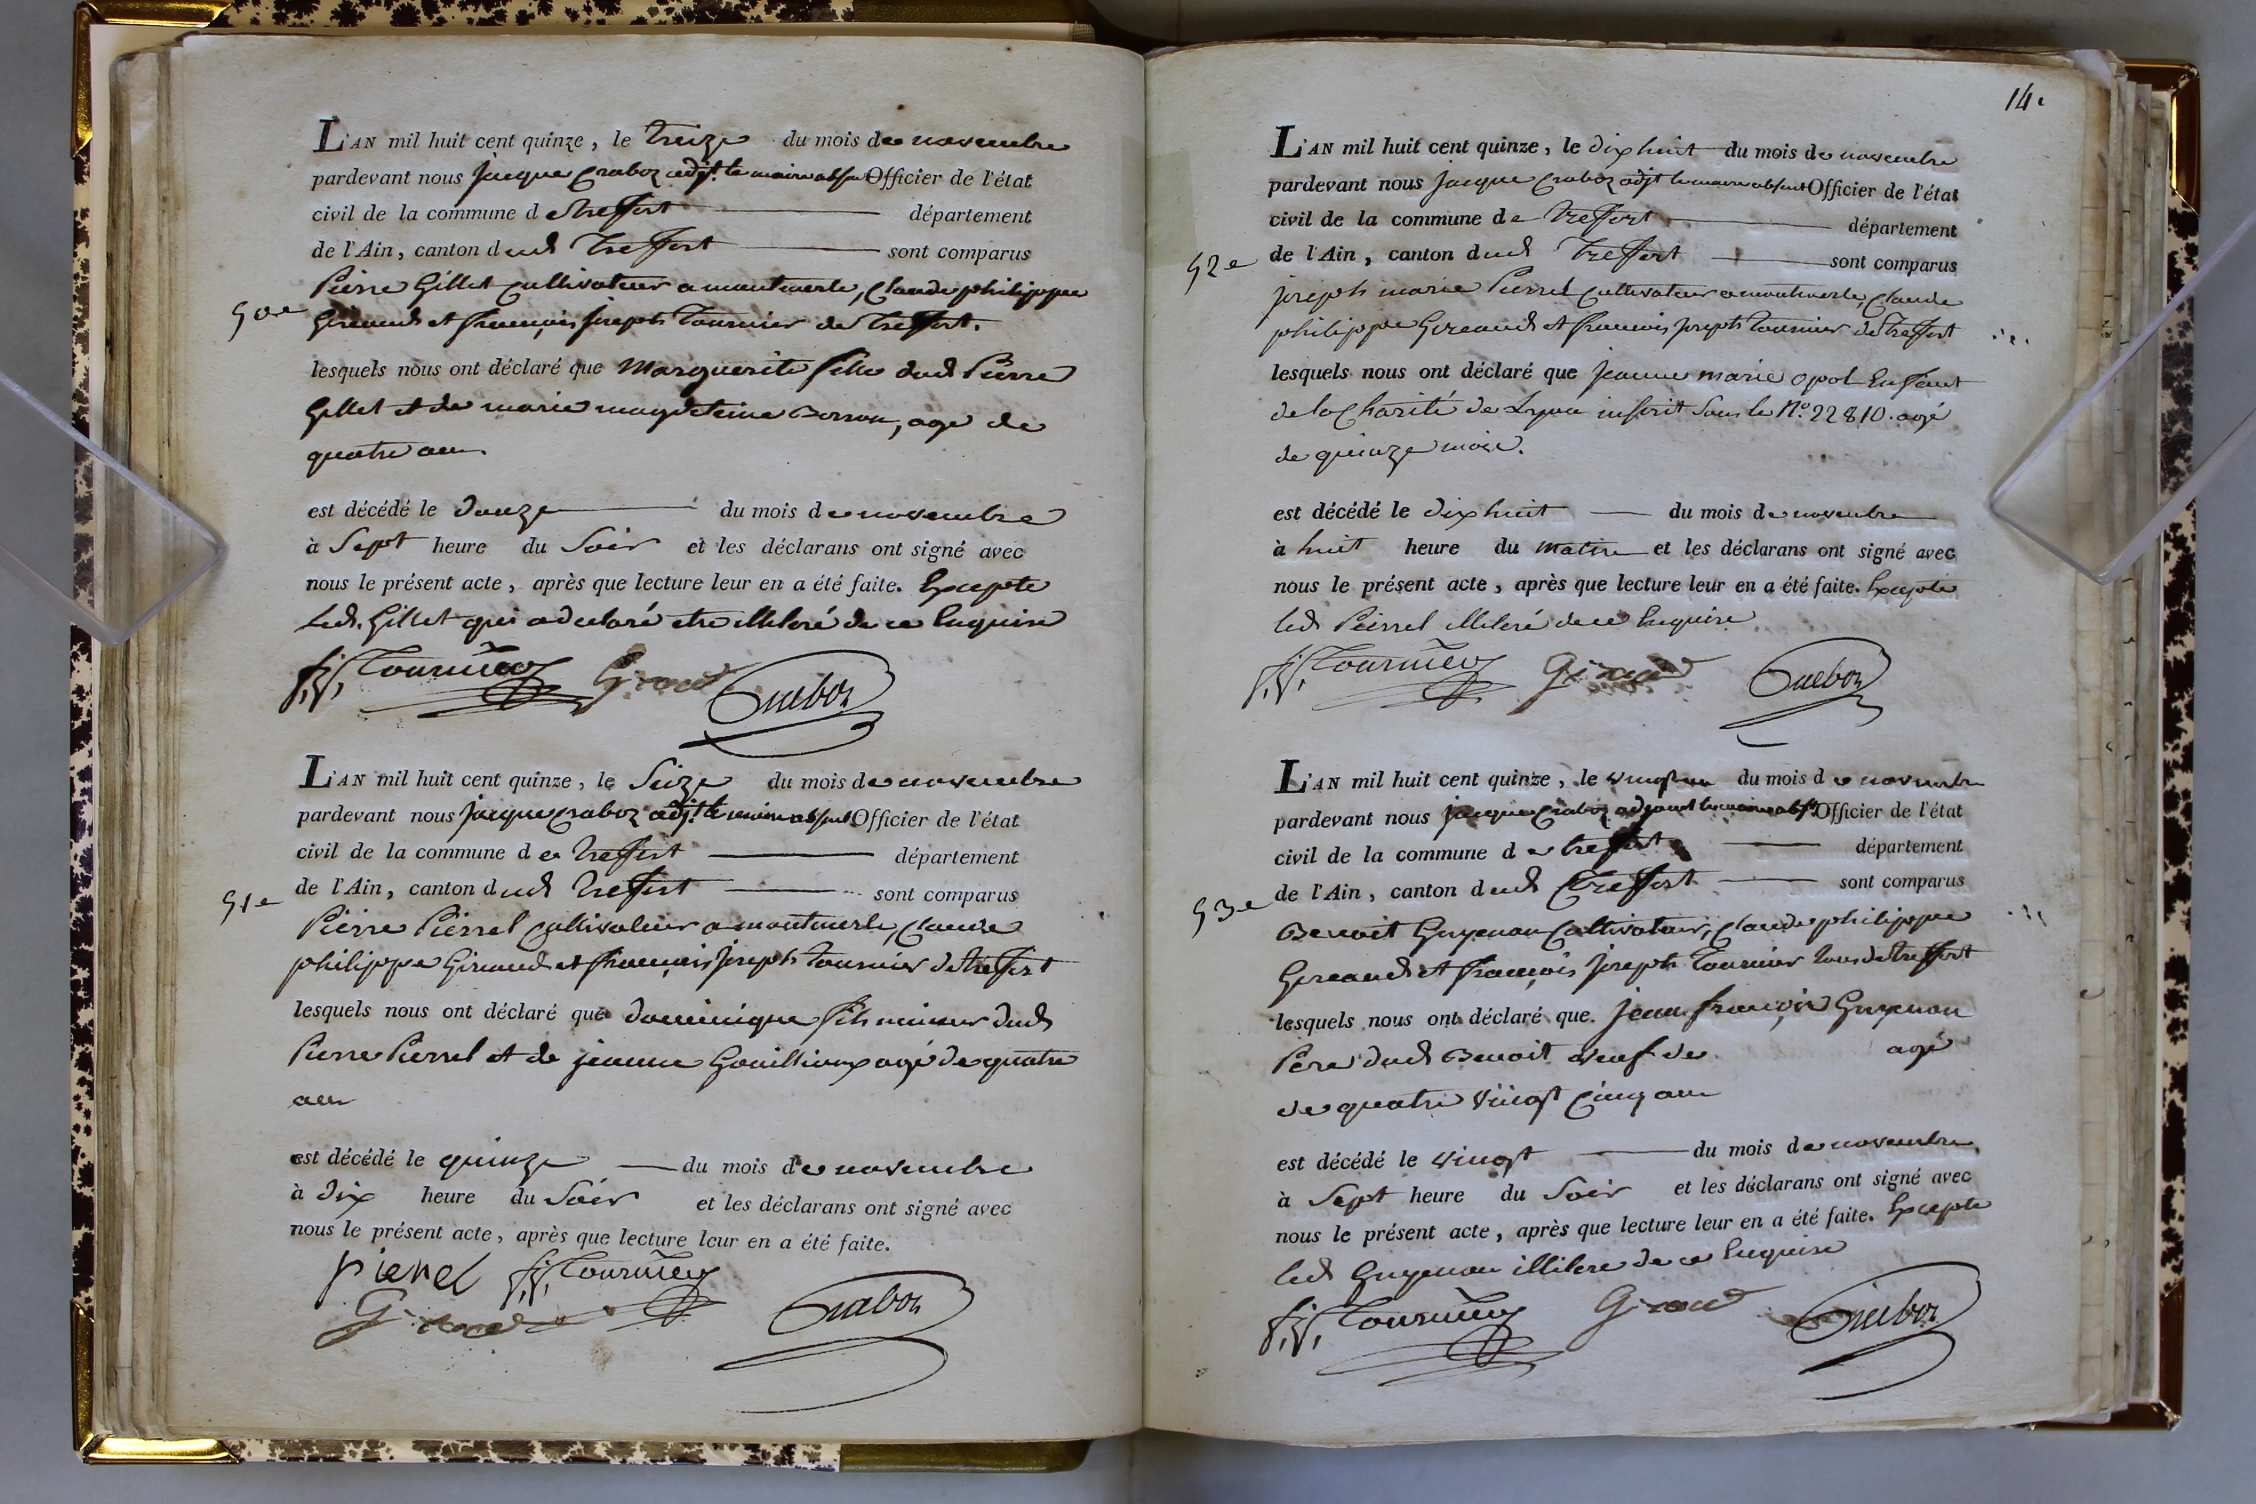 L'AN mil huit cent quinze, le treize du mois de novembre
pardevant nous Jacque Craboz adjt. le maire absent Officier de l'état
civil de la commune de treffort département
de l'Ain, canton dud Treffort sont comparus
50e
Pierre Gillet Cultivateur a montmerle, Claude philippe
Gireaud et francois joseph Tournier de Treffort.
lesquels nous ont déclaré que Marguerite fille dud Pierre
Gillet et de marie magdeleine Borron, age de
quatre ans.
est décédé le douze du mois de novembre
à Sept heure du Soir et les déclarans ont signé avec
nous le présent acte, après que lecture leur en a été faite. Excepte
Led. Gillet qui a declaré etre illiteré de ce Enquire
f,j, Tournier Giraud Craboz
L'AN mil huit cent quinze, le Seize du mois de novembre
pardevant nous jacque Craboz adjt. le maire absent Officier de l'état
civil de la commune de Treffort département
de l'Ain, canton dud Treffort sont comparus
51e
Pierre Pierrel Cultivateur a montmerle, Claude
philippe Giraud et francois joseph Tournier de treffort
lesquels nous ont déclaré que dominique fils mineur dud
Pierre Pierrel et de jeanne Gouilloux agé de quatre
ans
est décédé le quinze du mois de novembre
à dix heure du Soir et les déclarans ont signé avec
nous le présent acte, après que lecture leur en a été faite.
pierrel f,j, Tournier
Giraud Craboz
14e
L'AN mil huit cent quinze, le dix huit du mois de novembre
pardevant nous Jacque Craboz adjt le maire absent Officier de l'état
civil de la commune de Treffort département
de l'Ain, canton dud Treffort sont comparus
52e
joseph marie Pierrel Cultivateur a montmerle, Claude
philippe Gireaud et francois joseph Tournier de Treffort
lesquels nous ont déclaré que jeanne marie opol Enfant
de la Charité de Lyon inscrit Sous le No. 22810. agé
de quinze mois.
est décédé le dix huit du mois de novembre
à huit heure du matin et les déclarans ont signé avec
nous le présent acte, après que lecture leur en a été faite. Excepte
led Pierrel illiteré de ce Enquire
f,j, Tournier Giraud Craboz
L'AN mil huit cent quinze, le vingt un du mois de novembre
pardevant nous jacque Craboz adjoint le maire abst Officier de l'état
civil de la commune de treffort département
de l'Ain, canton dud Treffort sont comparus
53e
Benoit Guyenon Cultivateur, Claude philippe
Gireaud et francois joseph Tournier tous de treffort
lesquels nous ont déclaré que jean françois Guyenon
Pere dud Benoit veuf de agé
de quatre vingt cinq ans
est décédé le vingt du mois de novembre
à Sept heure du Soir et les déclarans ont signé avec
nous le présent acte, après que lecture leur en a été faite. Excepte
led Guyenon illitere de ce Enquire
f,j, Tournier Giraud Craboz